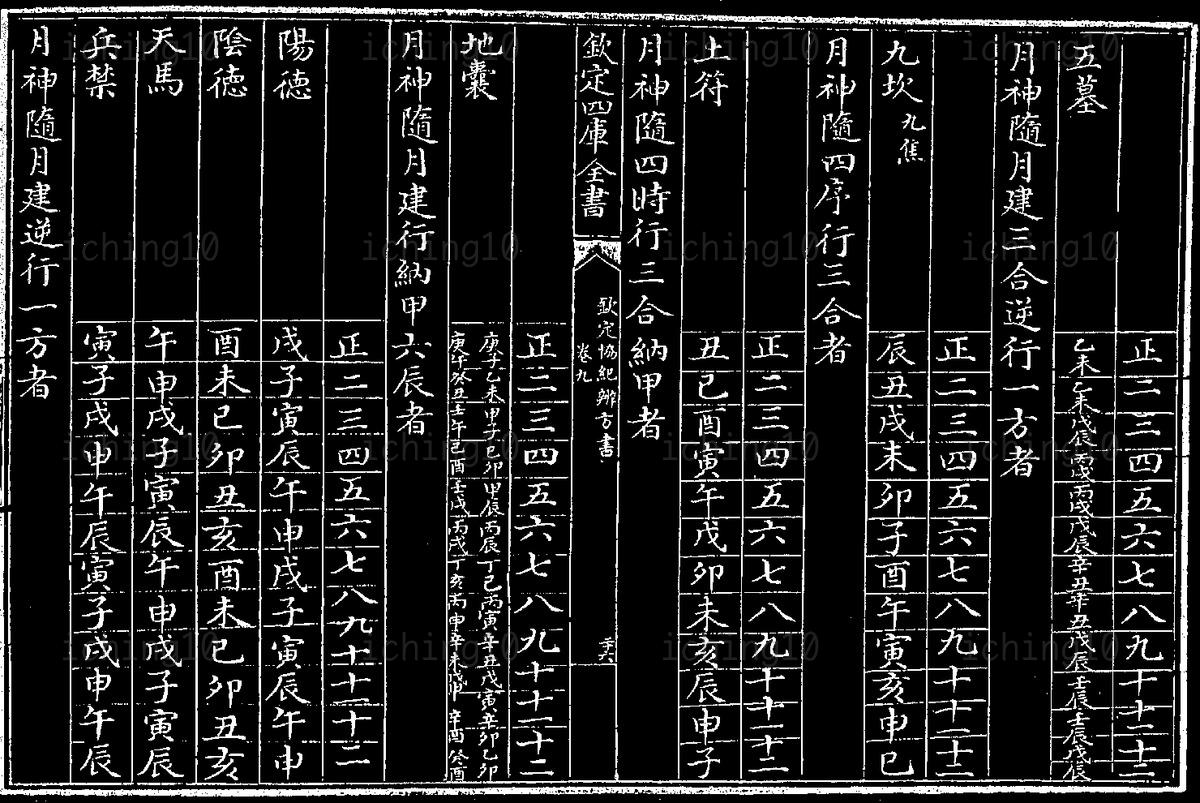 正二三四五六七八九十十一十二
五墓 乙未 乙未 戊辰 丙戌 丙戌 戊辰 辛丑 辛丑 戊辰 壬辰 壬辰 戊辰
月神隨月建三合逆行一方者
正二三四五六七八九十十一十二
九坎 九焦 辰丑戌未卯子酉午寅亥申巳
月神隨四序行三合者
正二三四五六七八九十十一十二
土符 丑巳酉寅午戌卯未亥辰申子
月神隨四時行三合納甲者
欽定四庫全書
欽定協紀辨方書 卷九
正二三四五六七八九十十一十二
地囊 庚子 乙未 甲子 己卯 甲辰 丙辰 丁巳 丙寅 辛丑 戊寅 辛卯 乙卯
庚午 癸丑 壬午 己酉 壬戌 丙戌 丁亥 丙申 辛未 戊申 辛酉 癸酉
月神隨月建行納甲六辰者
正二三四五六七八九十十一十二
陽德 戌子寅辰午申戌子寅辰午申
陰德 酉未巳卯丑亥酉未巳卯丑亥
天馬 午申戌子寅辰午申戌子寅辰
兵禁 寅子戌申午辰寅子戌申午辰
月神隨月建逆行一方者
iching10 iching10 iching10 iching10
iching10 iching10 iching10 iching10
iching10 iching10 iching10 iching10
iching10 iching10 iching10 iching10